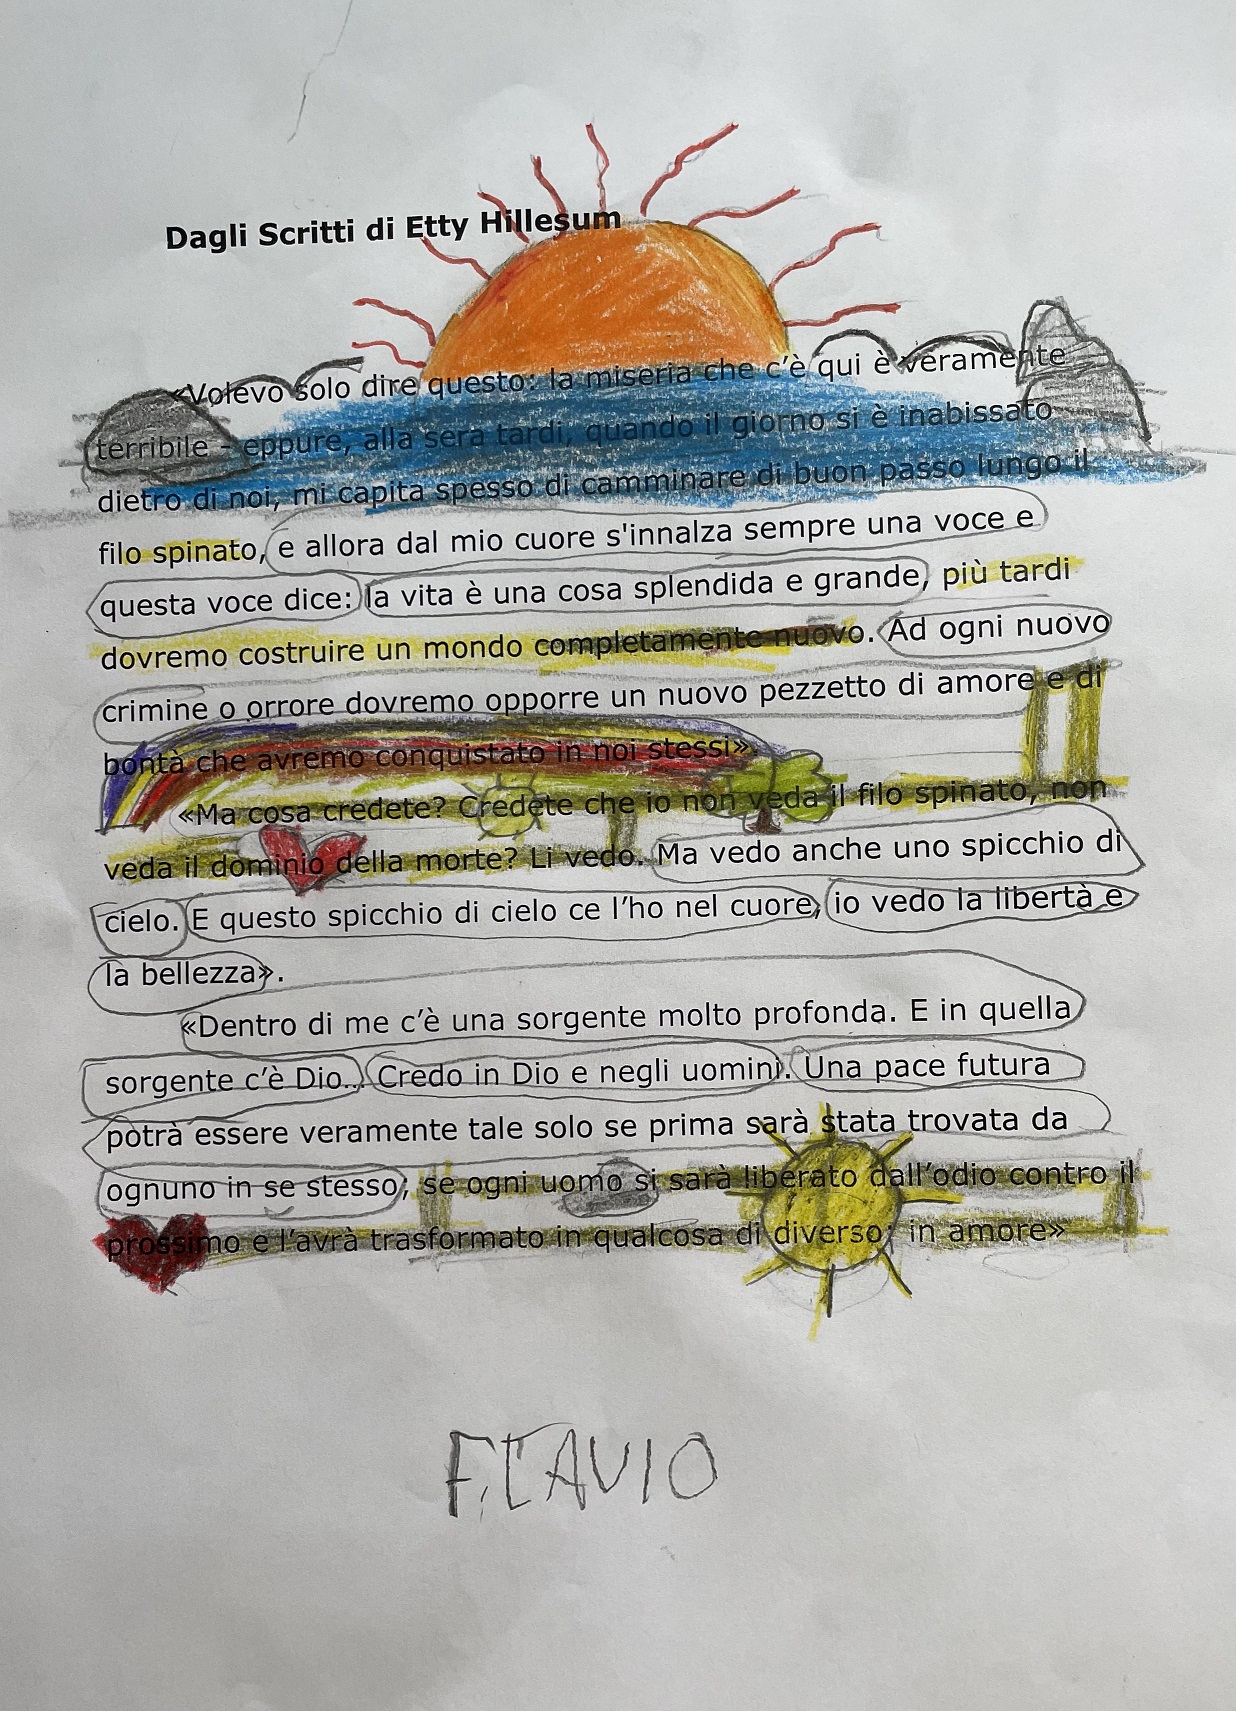 Dagli Scritti di Etty Hillesum
«Volevo solo dire questo: la miseria che c’è qui è veramente
terribile – eppure, alla sera tardi, quando il giorno si è inabissato
dietro di noi, mi capita spesso di camminare di buon passo lungo il
filo spinato, e allora dal mio cuore s'innalza sempre una voce e
questa voce dice: la vita è una cosa splendida e grande, più tardi
dovremo costruire un mondo completamente nuovo. Ad ogni nuovo
crimine o orrore dovremo opporre un nuovo pezzetto di amore e di
bontà che avremo conquistato in noi stessi».
«Ma cosa credete? Credete che io non veda il filo spinato, non
veda il dominio della morte? Li vedo. Ma vedo anche uno spicchio di
cielo. E questo spicchio di cielo ce l’ho nel cuore, io vedo la libertà e
la bellezza».
«Dentro di me c’è una sorgente molto profonda. E in quella
sorgente c’è Dio... Credo in Dio e negli uomini. Una pace futura
potrà essere veramente tale solo se prima sarà stata trovata da
ognuno in se stesso; se ogni uomo si sarà liberato dall’odio contro il
prossimo e l’avrà trasformato in qualcosa di diverso; in amore»
FLAVIO